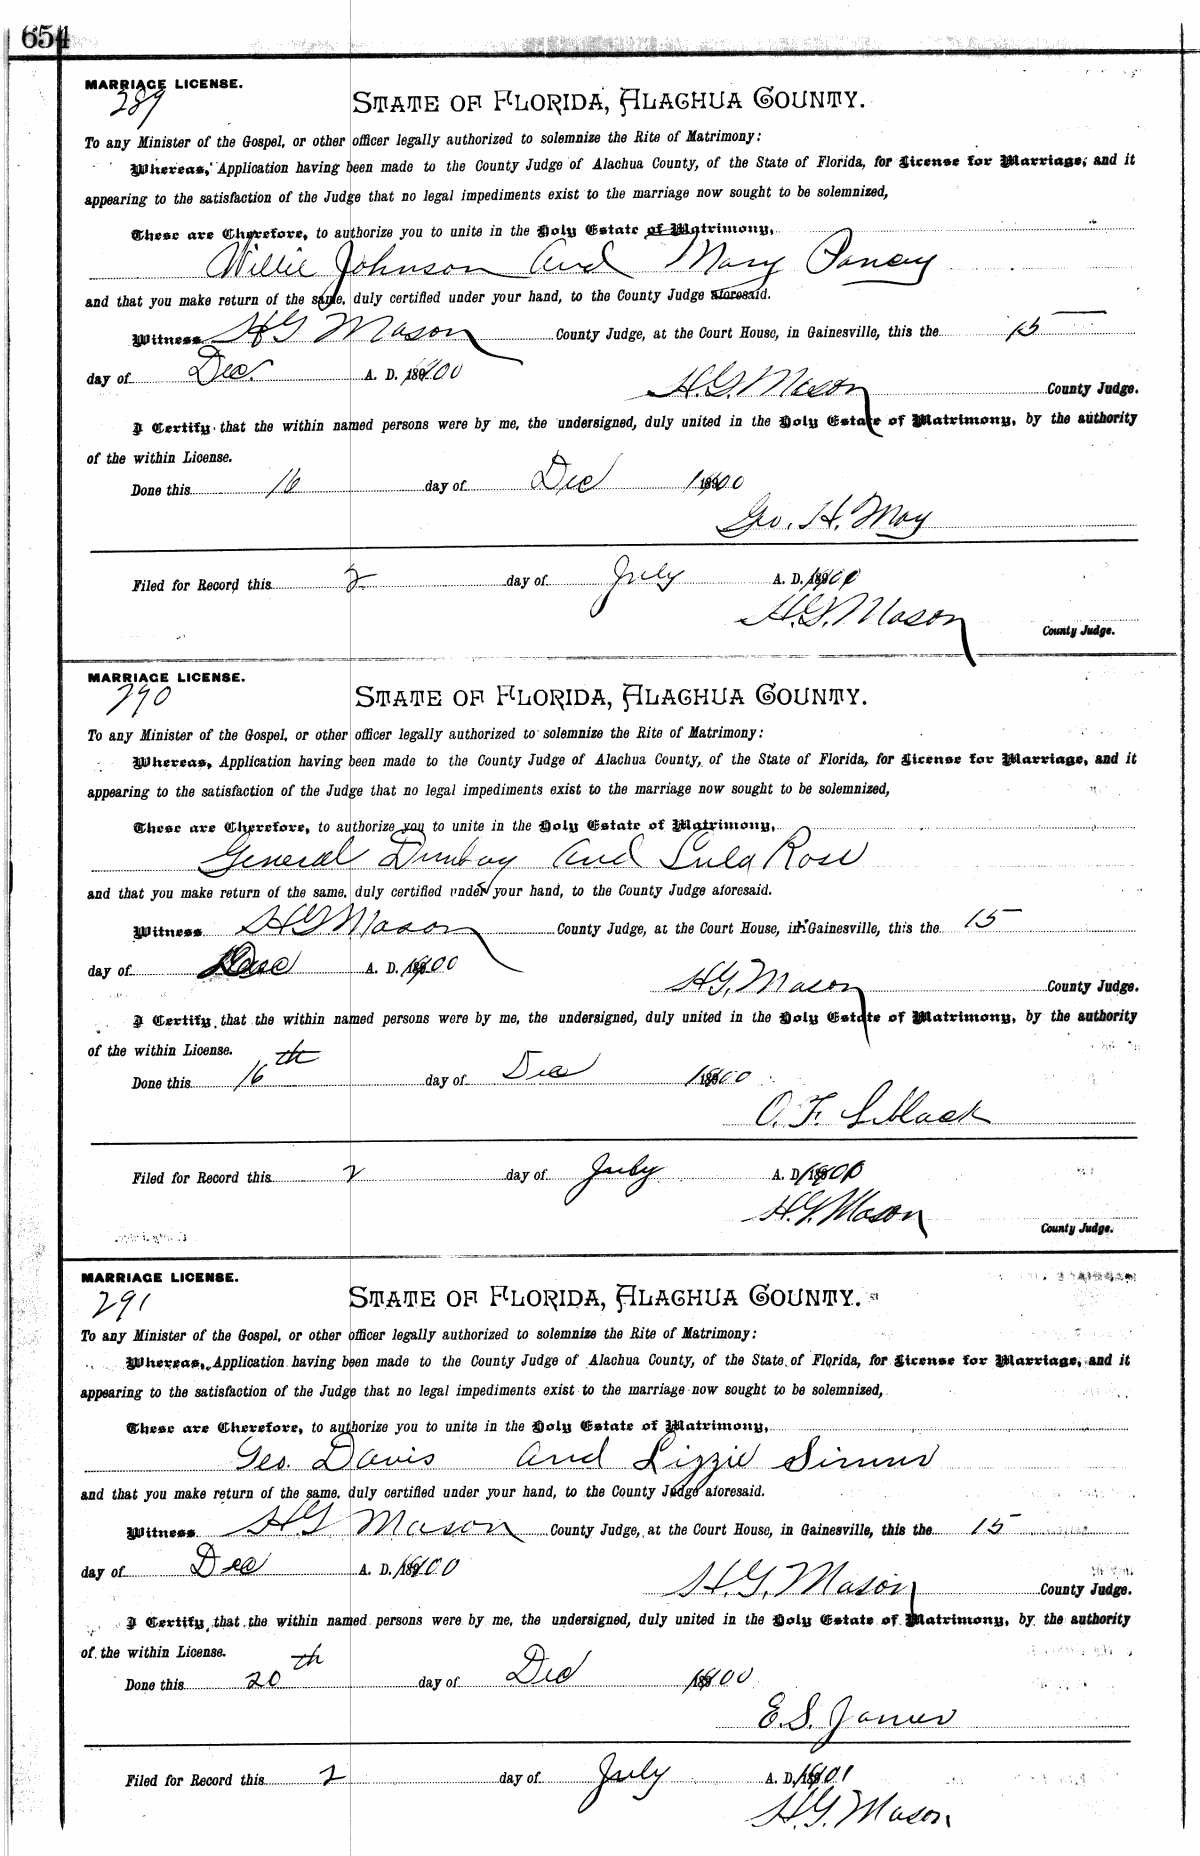 654
MARRIAGE LICENSE.
289
STATE OF FLORIDA, ALACHUA COUNTY.
To any Minister of the Gospel, or other officer legally authorized to solemnize the Rite of Matrimony:
Whereas, Application having been made to the County Judge of Alachua County, of the State of Florida, for License for Marriage, and it
appearing to the satisfaction of the Judge that no legal impediments exist to the marriage now sought to be solemnized,
These are Therefore, to authorize you to unite in the Holy Estate of Matrimony,
Willie Johnson and Mary
and that you make return of the same, duly certified under your hand, to the County Judge aforesaid.
Witness H G Mason County Judge, at the Court House, in Gainesville, this the 15
day of Dec. A. D. 1900
H. G. Mason County Judge.
I Certify that the within named persons were by me, the undersigned, duly united in the Holy Estate of Matrimony, by the authority
of the within License.
Done this 16 day of Dec 1900
Geo. H. May
Filed for Record this 2 day of July A. D. 1901
H. G. Mason
County Judge.
MARRIAGE LICENSE.
290
STATE OF FLORIDA, ALACHUA COUNTY.
To any Minister of the Gospel, or other officer legally authorized to solemnize the Rite of Matrimony:
Whereas, Application having been made to the County Judge of Alachua County, of the State of Florida, for License for Marriage, and it
appearing to the satisfaction of the Judge that no legal impediments exist to the marriage now sought to be solemnized,
These are Therefore, to authorize you to unite in the Holy Estate of Matrimony,
General and Lula Rose
and that you make return of the same, duly certified under your hand, to the County Judge aforesaid.
Witness H G Mason County Judge, at the Court House, in Gainesville, this the 15
day of Dec A. D. 1900
H. G. Mason County Judge.
I Certify, that the within named persons were by me, the undersigned, duly united in the Holy Estate of Matrimony, by the authority
of the within License.
Done this 16th day of Dec 1900
O. F.
Filed for Record this 2 day of July A. D. 1901
H. G. Mason
County Judge.
MARRIAGE LICENSE.
291
STATE OF FLORIDA, ALACHUA COUNTY.
To any Minister of the Gospel, or other officer legally authorized to solemnize the Rite of Matrimony:
Whereas, Application having been made to the County Judge of Alachua County, of the State of Florida, for License for Marriage, and it
appearing to the satisfaction of the Judge that no legal impediments exist to the marriage now sought to be solemnized,
These are Therefore, to authorize you to unite in the Holy Estate of Matrimony,
Geo. Davis and Lizzie Simms
and that you make return of the same, duly certified under your hand, to the County Judge aforesaid.
Witness H. G Mason County Judge, at the Court House, in Gainesville, this the 15
day of Dec A. D. 1900
H. G. Mason County Judge.
I Certify, that the within named persons were by me, the undersigned, duly united in the Holy Estate of Matrimony, by the authority
of the within License.
Done this 20th day of Dec 1900
E. S. James
Filed for Record this 2 day of July A. D. 1901
H. G. Mason